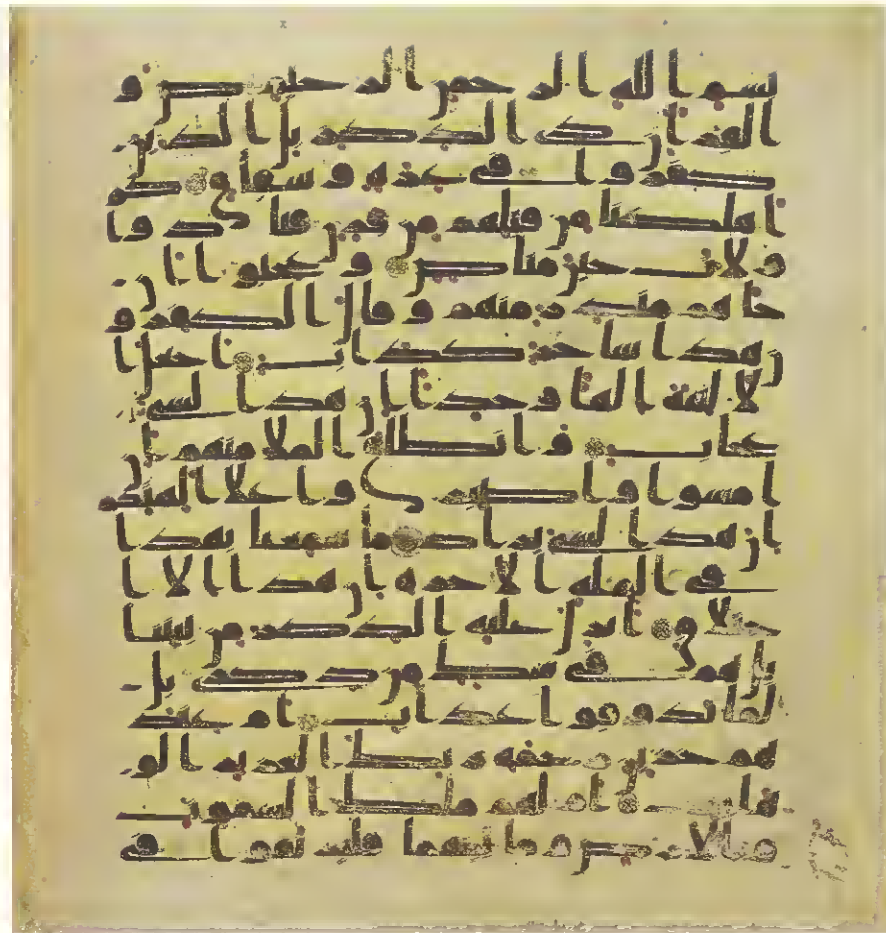 بسم الله الرحمن الرحيم ص و
القران ذي الذكر بل الذين
كفروا في عزة وشقاق كم
اهلكنا من قبلهم من قرن فنادوا
ولات حين مناص وعجبوا ان
جاهم منذر منهم وقال الكفرو
ن هذا ساحر كذاب اجعل ا
لالهة الها وحدا ان هذا لشي
عجاب وانطلق الملا منهم ان
امشوا واصبروا على الهتكم
ان هذا لشي يراد ما سمعنا بهذا
في الملة الاخرة ان هذا الا ا
ختلق انزل عليه الذكر من بيننا
بل هم في شك من ذكري بل
لما يذوقوا عذاب ام عند
هم خزاين رحمة ربك العزيز الو
هاب ام لهم ملك السموت
والارض وما بينهما فليرتقوا في